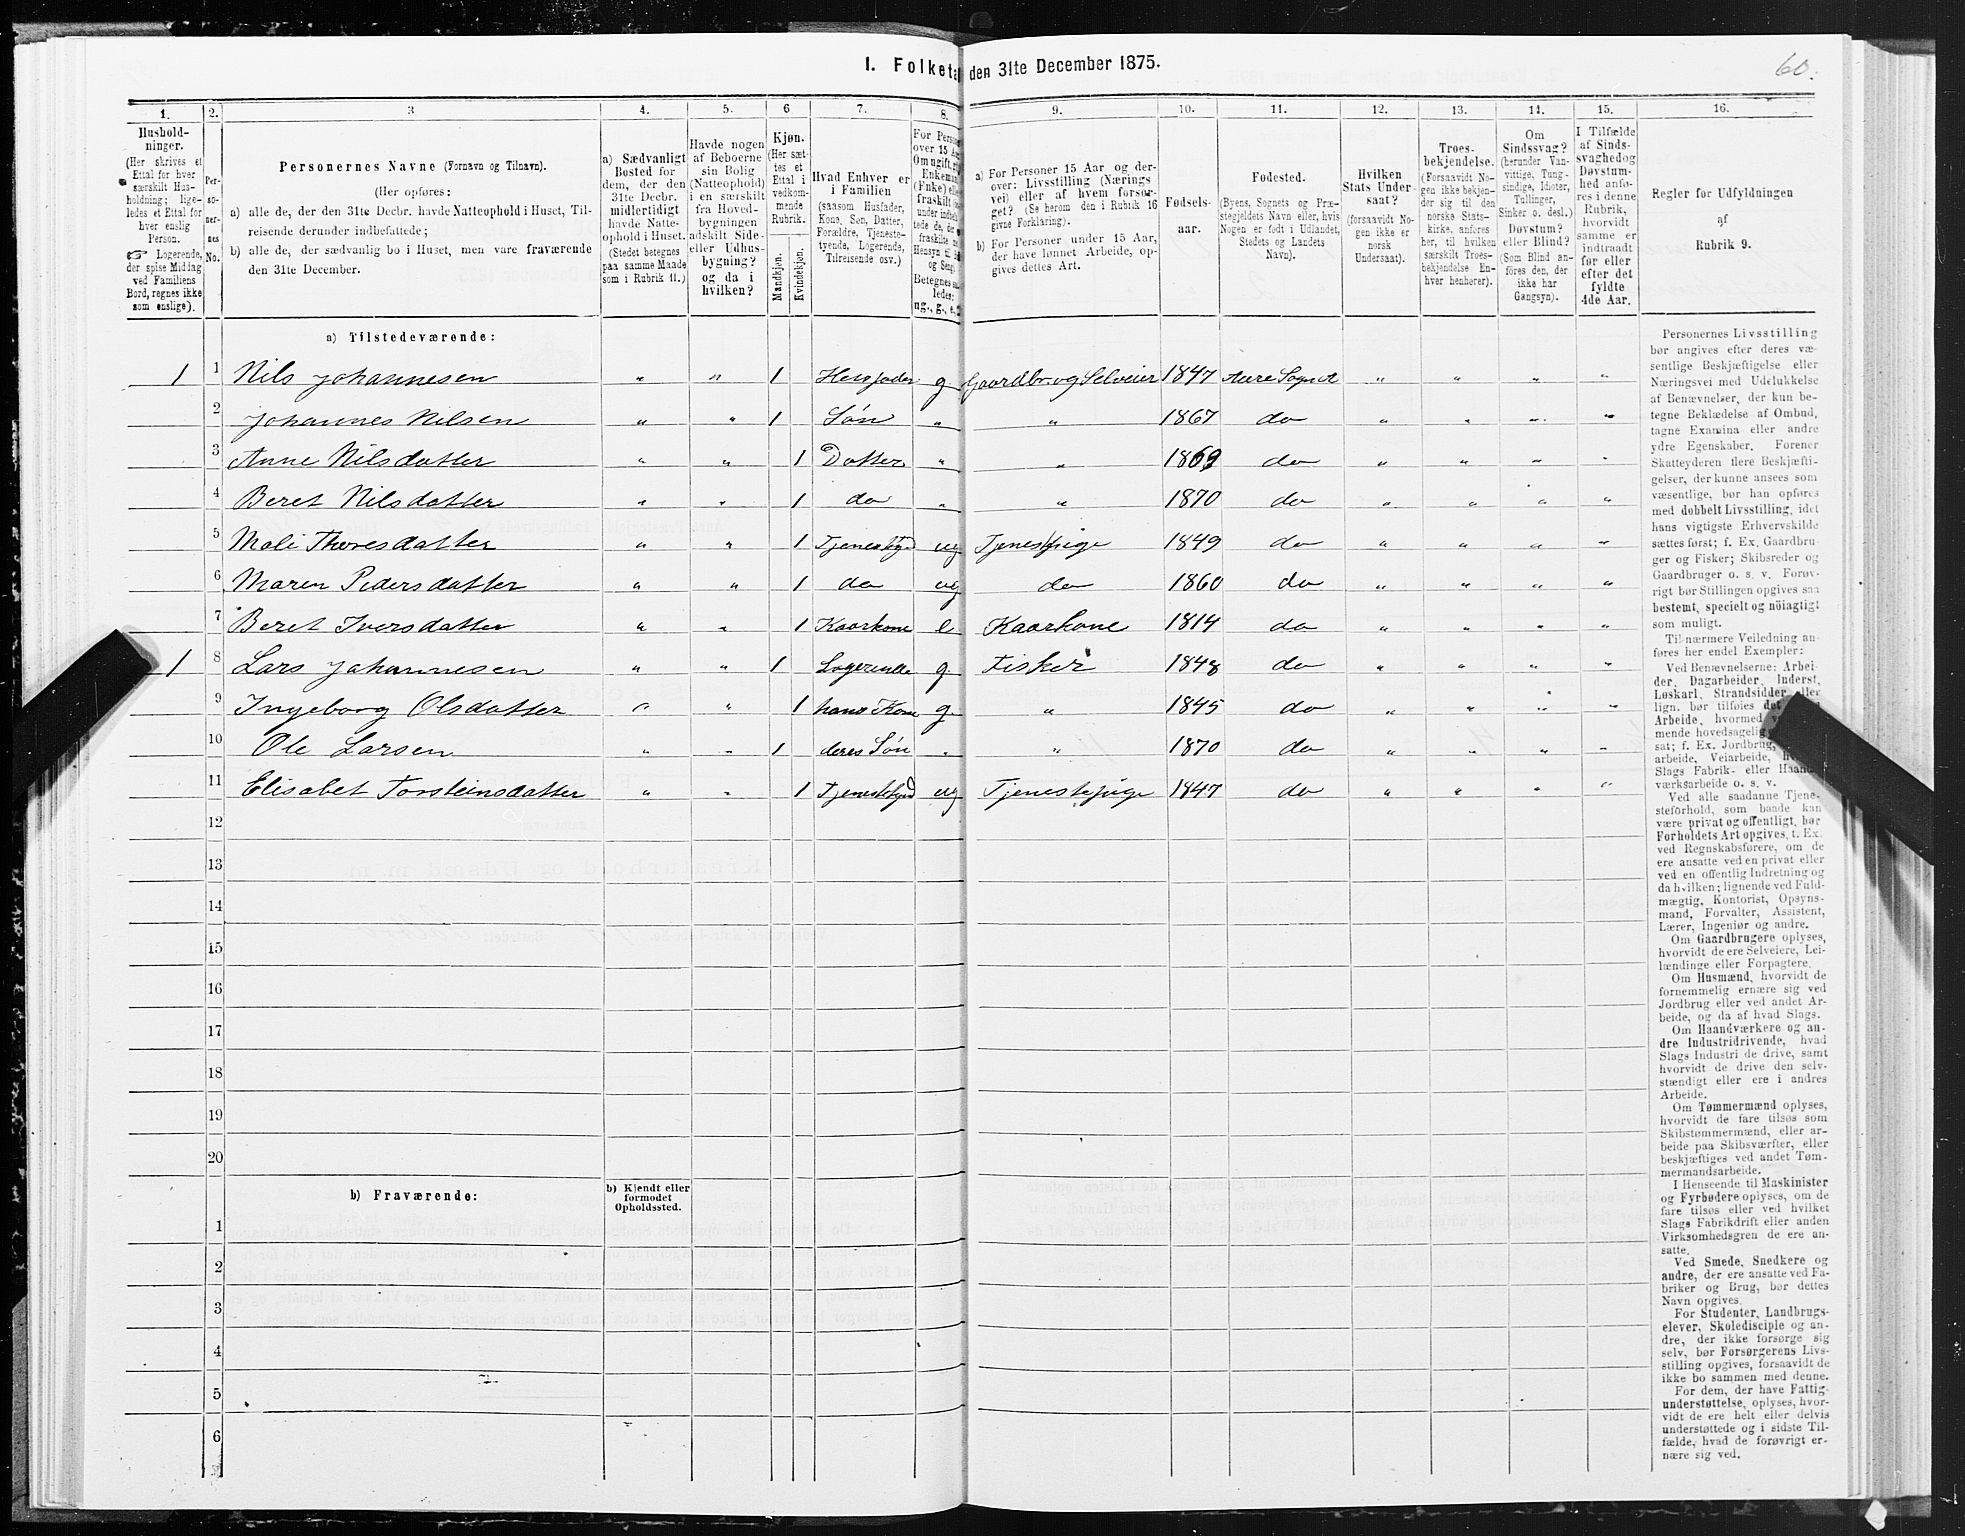 I. Folketa den 31te December 1875.
60.
1.
2.
3
4.
5.
6
7.
8.
9.
10.
11.
12.
13.
14.
15.
16.
Hushold-
ninger.
(Her skrives et
Ettal for hver
særskilt Hus-
holdning; lige-
ledes et Ettal for
hver enslig
Person.
☞ Logerende,
der spise Middag
ved Familiens
Bord, regnes ikke
som enslige).
Per-
so-
ner-
nes
No.
Personernes Navne (Fornavn og Tilnavn).
(Her opføres:
a) alle de, der den 31te Decbr. havde Natteophold i Huset, Til-
reisende derunder indbefattede;
b) alle de, der sædvanlig bo i Huset, men vare fraværende
den 31te December.
a) Sædvanligt
Bosted for
dem, der den
31te Decbr.
midlertidigt
havde Natte-
ophold i Huset.
(Stedet betegnes
paa samme Maade
som i Rubrik 11.)
Havde nogen
af Beboerne
sin Bolig
(Natteophold)
i en særskilt
fra Hoved-
bygningen
adskilt Side-
eller Udhus-
bygning?
og da i
hvilken?
Kjøn.
(Her sæt-
tes et
Ettal i
vedkom-
mende
Rubrik.
Mandkjøn.
Kvindekjøn.
Hvad Enhver er
i Familien
(saasom Husfader,
Kone, Søn, Datter,
Forældre, Tjeneste-
tyende, Logerende,
Tilreisende osv.)
For Person
over 15 Aar
Om ugift, g
Enkeman
(Fnke) el
fraskilt
ledes:
ug., g., e,
a) For Personer 15 Aar og der-
over: Livsstilling (Nærings
vei) eller af hvem forsør-
get? (Se herom den i Rubrik 16
givne Forklaring).
b) For Personer under 15 Aar,
der have lønnet Arbeide, op-
gives dettes Art.
Fødsels-
aar.
Fødested.
(Byens, Sognets og Præ-
stegjeldets Navn eller, hvis
Nogen er født i Udlandet,
Stedets og Landets
Navn).
Hvilken
Stats Under-
saat?
(forsaavidt No-
gen ikke er
norsk
Undersaat).
Troes-
bekjendelse.
(Forsaavidt No-
gen ikke bekjen-
der sig til den
norske Stats-
kirke, anføres
her, til hvilken
særskilt Troes-
bekjendelse En-
hver henhører).
Om
Sindssvag?
(herunder Van-
vittige, Tung-
sindige, Idioter,
Tullinger,
Sinker o. desl.)
Døvstum?
eller Blind?
(Som Blind an-
føres den, der
ikke har
Gangsyn).
I Tilfælde
af Sinds-
svaghedog
Døvstum-
hed anfø-
res i denne
Rubrik,
hvorvidt
samme er
indtraadt
før eller
efter det
fyldte
4de Aar.
Regler for Udfyldningen
af
Rubrik 9.
a) Tilstedeværende:
1 1 Nils Johannesen " " 1 Husfader g Gaardbr. og Selveier 1847 Aure Sogn " " " "
2 Johannes Nilsen " " 1 Søn " " 1867 do " " " "
3 Anne Nilsdatter " " 1 Datter " " 1869 do " " " "
4 Beret Nilsdatter " " 1 do " " 1870 do " " " "
5 Mali Thoresdatter " " 1 Tjenestetyd ug Tjenestpige 1849 do " " " "
6 Maren Pedersdatter " " 1 do ug do 1860 do " " " "
7 Beret Iversdatter " " 1 Kaarkone e Kaarkone 1814 do " " " "
1 8 Lars Johannesen " " 1 Logerende g Fisker 1848 do " " " "
9 Ingeborg Olsdatter " " 1 hans Kone g " 1845 do " " " "
10 Ole Larsen " " 1 deres Søn " " 1870 do " " " "
11 Elisabet Torsteinsdatter " " 1 Tjenestetyd ug Tjenestepige 1847 do " " " "
12
13
14
15
16
17
18
19
20
b) Fraværende:
b) Kjendt eller
formodet
Opholdssted.
1
2
3
4
5
6
Personernes Livsstilling
bør angives efter deres væ-
sentlige Beskjæftigelse eller
Næringsvei med Udelukkelse
af Benævnelser, der kun be-
tegne Beklædelse af Ombud,
tagne Examina eller andre
ydre Egenskaber. Forener
Skatteyderen flere Beskjæfti-
gelser, der kunne ansees som
væsentlige, bør han opføres
med dobbelt Livsstilling, idet
hans vigtigste Erhvervskilde
sættes først; f. Ex. Gaardbru-
ger og Fisker; Skibsreder og
Gaardbruger o. s. v. Forøv-
rigt bør Stillingen opgives saa
bestemt, specielt og nöiagtigt
som muligt.
Til nærmere Veiledning an-
føres her endel Exempler:
Ved Benævnelserne: Arbei-
der, Dagarbeider, Inderst,
Løskarl, Strandsidder eller
lign. bør tilføies det
Arbeide, hvormed
mende hovedsagelig
sat; f. Ex. Jordbrug,
arbeide, Veiarbeide,
Slags Fabrik- eller Haand-
værksarbeide o. s. v.
Ved alle saadanne Tjene-
steforhold, som baade kan
være privat og offentligt, bør
Forholdets Art opgives, t. Ex.
ved Regnskabsførere, om de
ere ansatte ved en privat eller
ved en offentlig Indretning og
da hvilken; lignende ved Fuld-
mægtig, Kontorist, Opsyns-
mand, Forvalter, Assistent,
Lærer, Ingeniør og andre.
Om Gaardbrugere oplyses,
hvorvidt de ere Selveiere, Lei-
lændinge eller Forpagtere.
Om Husmænd, hvorvidt de
fornemmelig ernære sig ved
Jordbrug eller ved andet Ar-
beide, og da af hvad Slags.
Om Haandværkere og an-
dre Industridrivende, hvad
Slags Industri de drive, samt
hvorvidt de drive den selv-
stændigt eller ere i andres
Arbeide.
Om Tømmermænd oplyses,
hvorvidt de fare tilsøs som
Skibstømmermænd, eller ar-
beide paa Skibsværfter, eller
beskjæftiges ved andet Tøm-
mermandsarbeide.
I Henseende til Maskinister
og Fyrbødere oplyses, om de
fare tilsøs eller ved hvilket
Slags Fabrikdrift eller anden
Virksomhedsgren de ere an-
satte.
Ved Smede, Snedkere og
andre, der ere ansatte ved Fa-
briker og Brug, bør dettes
Navn opgives.
For Studenter, Landbrugs-
elever, Skoledisciple og an-
dre, der ikke forsørge sig
selv, bør Forsørgerens Livs-
stilling opgives, forsaavidt de
ikke bo sammen med denne.
For dem, der have Fattig-
understøttelse, oplyses, hvor-
vidt de ere helt eller delvis
understøttede og i sidste Til-
fælde, hvad de forøvrigt er-
nære sig ved.